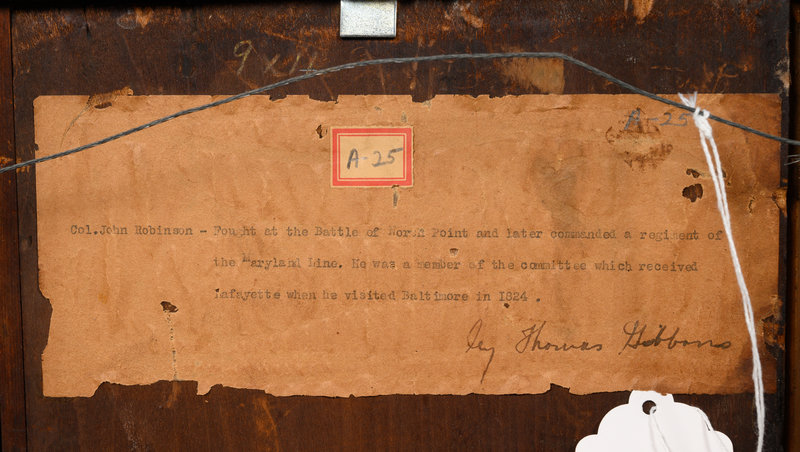 9x11
A-25
A-25
Col.John Robinson - Fought at the Battle of North Point and later commanded a regiment of
the Maryland Line. He was a member of the committee which received
Lafayette when he visited Baltimore in 1824 .
By Thomas Gibbons